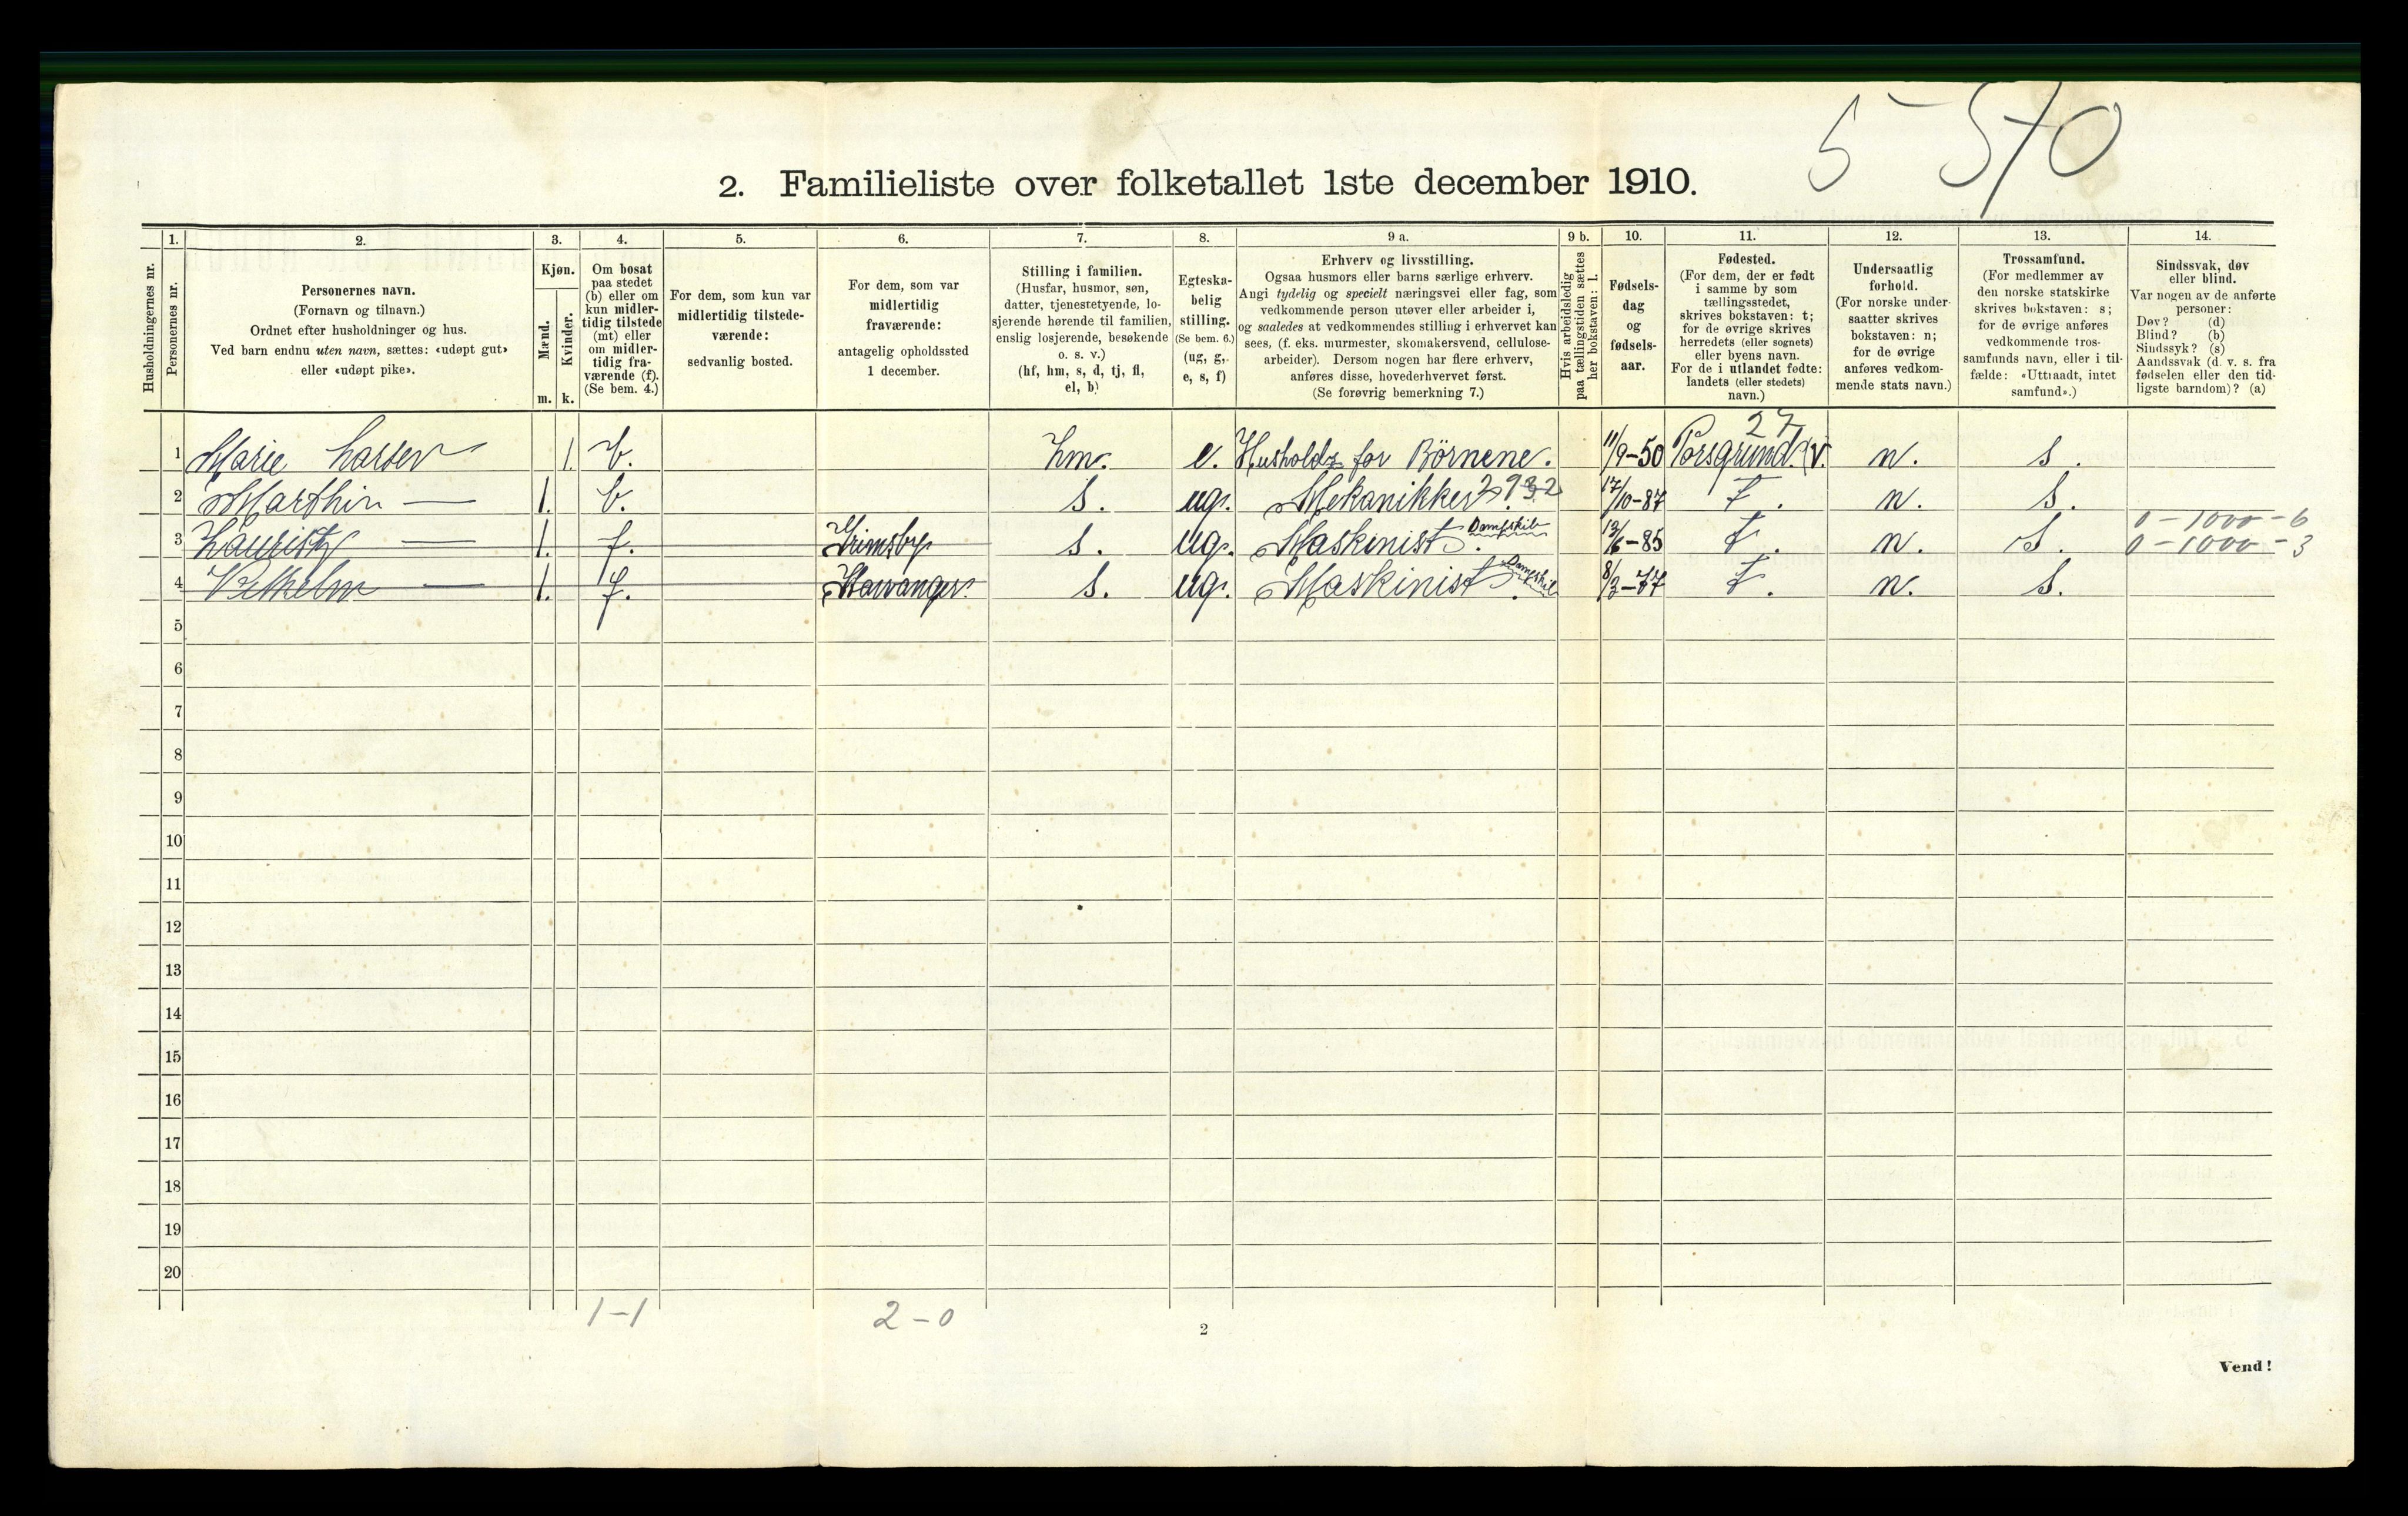 5 - 570
2. Familieliste over folketallet 1ste december 1910.
Husholdningernes nr.
1.
Personernes nr.
2.
Personernes navn.
(Fornavn og tilnavn.)
Ordnet efter husholdninger og hus.
Ved barn endnu uten navn, sættes: «udøpt gut»
eller «udøpt pike».
3.
Kjøn.
Mænd.
Kvinder.
m. k.
4.
Om bosat
paa stedet
(b) eller om
kun midler-
tidig tilstede
(mt) eller
om midler-
tidig fra-
værende (f).
(Se bem. 4.)
5.
For dem, som kun var
midlertidig tilstede-
værende:
sedvanlig bosted.
6.
For dem, som var
midlertidig
fraværende:
antagelig opholdssted
1 december.
7.
Stilling i familien.
(Husfar, husmor, søn,
datter, tjenestetyende, lo-
sjerende hørende til familien,
enslig losjerende, besøkende
o. s. v.)
(hf, hm, s, d, tj, fl,
el, b)
8.
Egteska-
belig
stilling.
(Se bem. 6.)
(ug, g,
e, s, f)
9 a.
Erhverv og livsstilling.
Ogsaa husmors eller barns særlige erhverv.
Angi tydelig og specielt næringsvei eller fag, som
vedkommende person utøver eller arbeider i,
og saaledes at vedkommendes stilling i erhvervet kan
sees, (f. eks. murmester, skomakersvend, cellulose-
arbeider). Dersom nogen har flere erhverv,
anføres disse, hovederhvervet først.
(Se forøvrig bemerkning 7.)
9 b.
Hvis arbeidsledig
paa tællingstiden sættes
her bokstaven: l.
10.
Fødsels-
dag
og
fødsels-
aar.
11.
Fødested.
(For dem, der er født
i samme by som
tællingsstedet,
skrives bokstaven: t;
for de øvrige skrives
herredets (eller sognets)
eller byens navn.
For de i utlandet fødte:
landets (eller stedets)
navn.)
12.
Undersaatlig
forhold.
(For norske under-
saatter skrives
bokstaven: n;
for de øvrige
anføres vedkom-
mende stats navn.)
13.
Trossamfund.
(For medlemmer av
den norske statskirke
skrives bokstaven: s;
for de øvrige anføres
vedkommende tros-
samfunds navn, eller i til-
fælde: «Uttraadt, intet
samfund».)
14.
Sindssvak, døv
eller blind.
Var nogen av de anførte
personer:
Døv? (d)
Blind? (b)
Sindssyk? (s)
Aandssvak (d. v. s. fra
fødselen eller den tid-
ligste barndom)? (a)
27
1 Marie Larsen 1. b. hm. e. Husholdg for Börnene. 11/9-50 Porsgrund. (V. n. s.
2 Marthin — 1. b. s. ug. Mekanikker. 2932 17/10-87 t. n. s.
3 Lauritz — 1. f. Grimsby s. ug. Maskinist. Dampskib 13/6-85 t. n. s. 0-1000-6
0-1000-3
4 Vilhelm — 1. f. Stavanger. s. ug. Maskinist. Dampskib 8/3-77 t. n. s.
5
6
7
8
9
10
11
12
13
14
15
16
17
18
19
20
1-1 2-0
2
Vend!